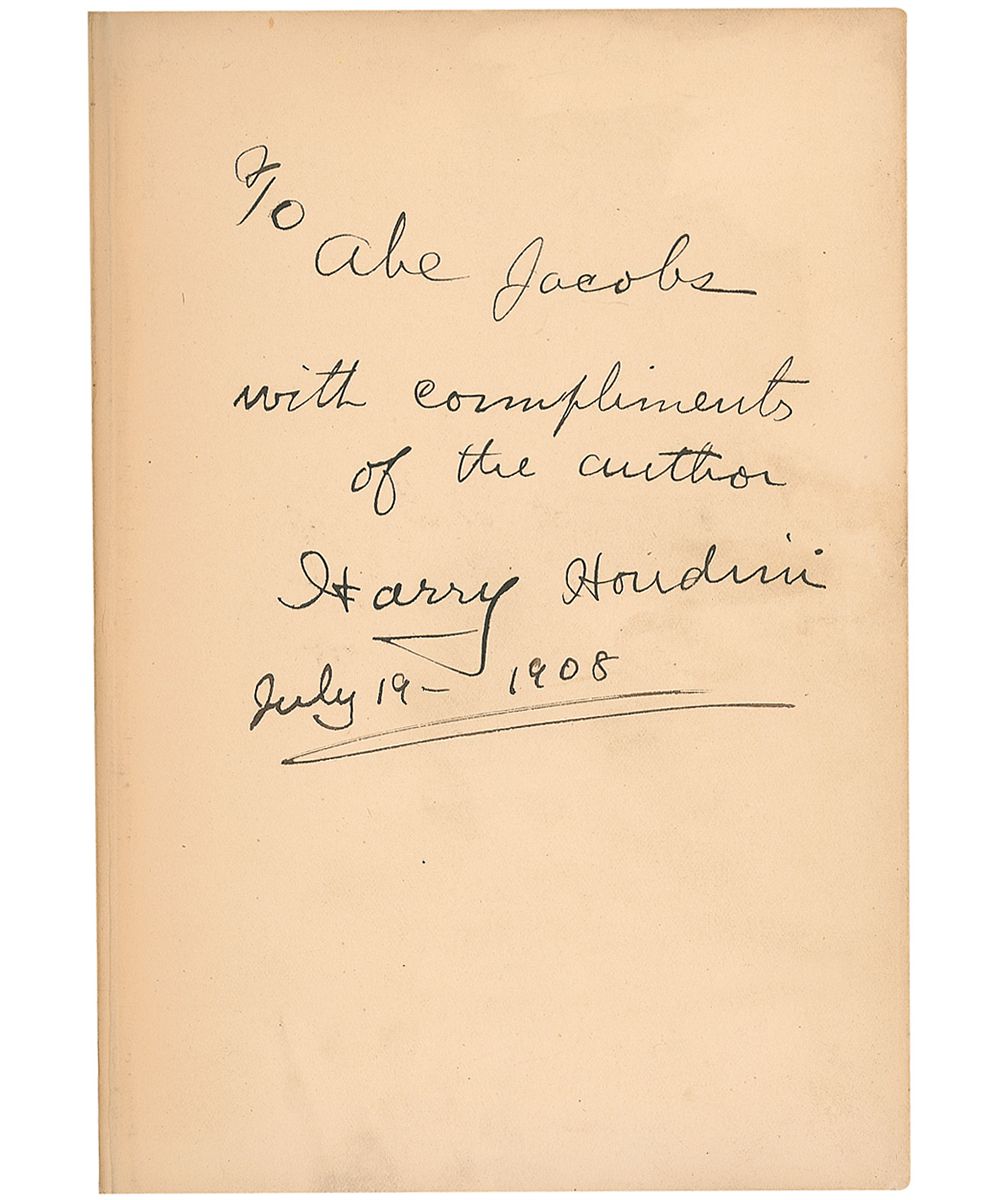 To
Abe Jacobs
with compliments
of the author
Harry Houdini
July 19- 1908